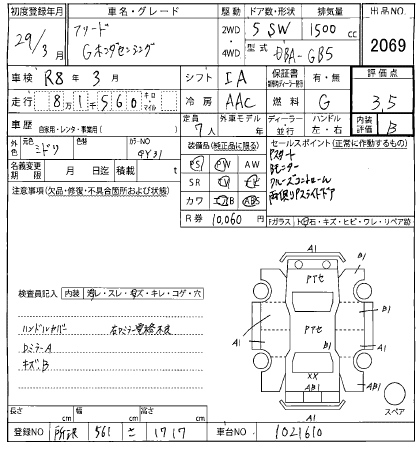 初度登録年月 車名・グレード 駆動 ドア数・形状 排気量 出品NO
29/3月 フリード 2WD 5 SW 1500cc 2069
Gホンダセンシング 4WD 型式 DBA-GB5
車検 R8年3月 シフト IA 保証書 有・無 評価点
走行 81560 キロ マイル 冷房 AAC 燃料 G 3.5
車歴 自家用・レンタ・事業用( ) 定員 7人 外車モデル 年 ディーラー 並行 ハンドル 左・右 内装評価 B
外色 元色 ミドリ 色替 カラーNO GY31 装備品(純正品に限る) セールスポイント(正常に作動するもの)
名義変更期限 月 日 積載 PS PW AW Pスタート
注意事項(欠品・修復・不具合箇所および状態) SR TV Bモニター
カワ ABS クルーズコントロール
R券 10,060円 両側Pスライドドア
Fガラス トビ石・キズ・ヒビ・ワレ・リペア跡
検査員記入 内装 汚レ・スレ・キズ・キレ・コゲ・穴
ハンドルカバー
Dミラー A
キズ、B
A1
B1
PTセ
PTセ
A1
B1
A1
XX
AB1
AB1
A1
スペア
長さ cm 幅 cm 高さ cm
登録NO 所沢 501 さ 1717 車台NO 1021610